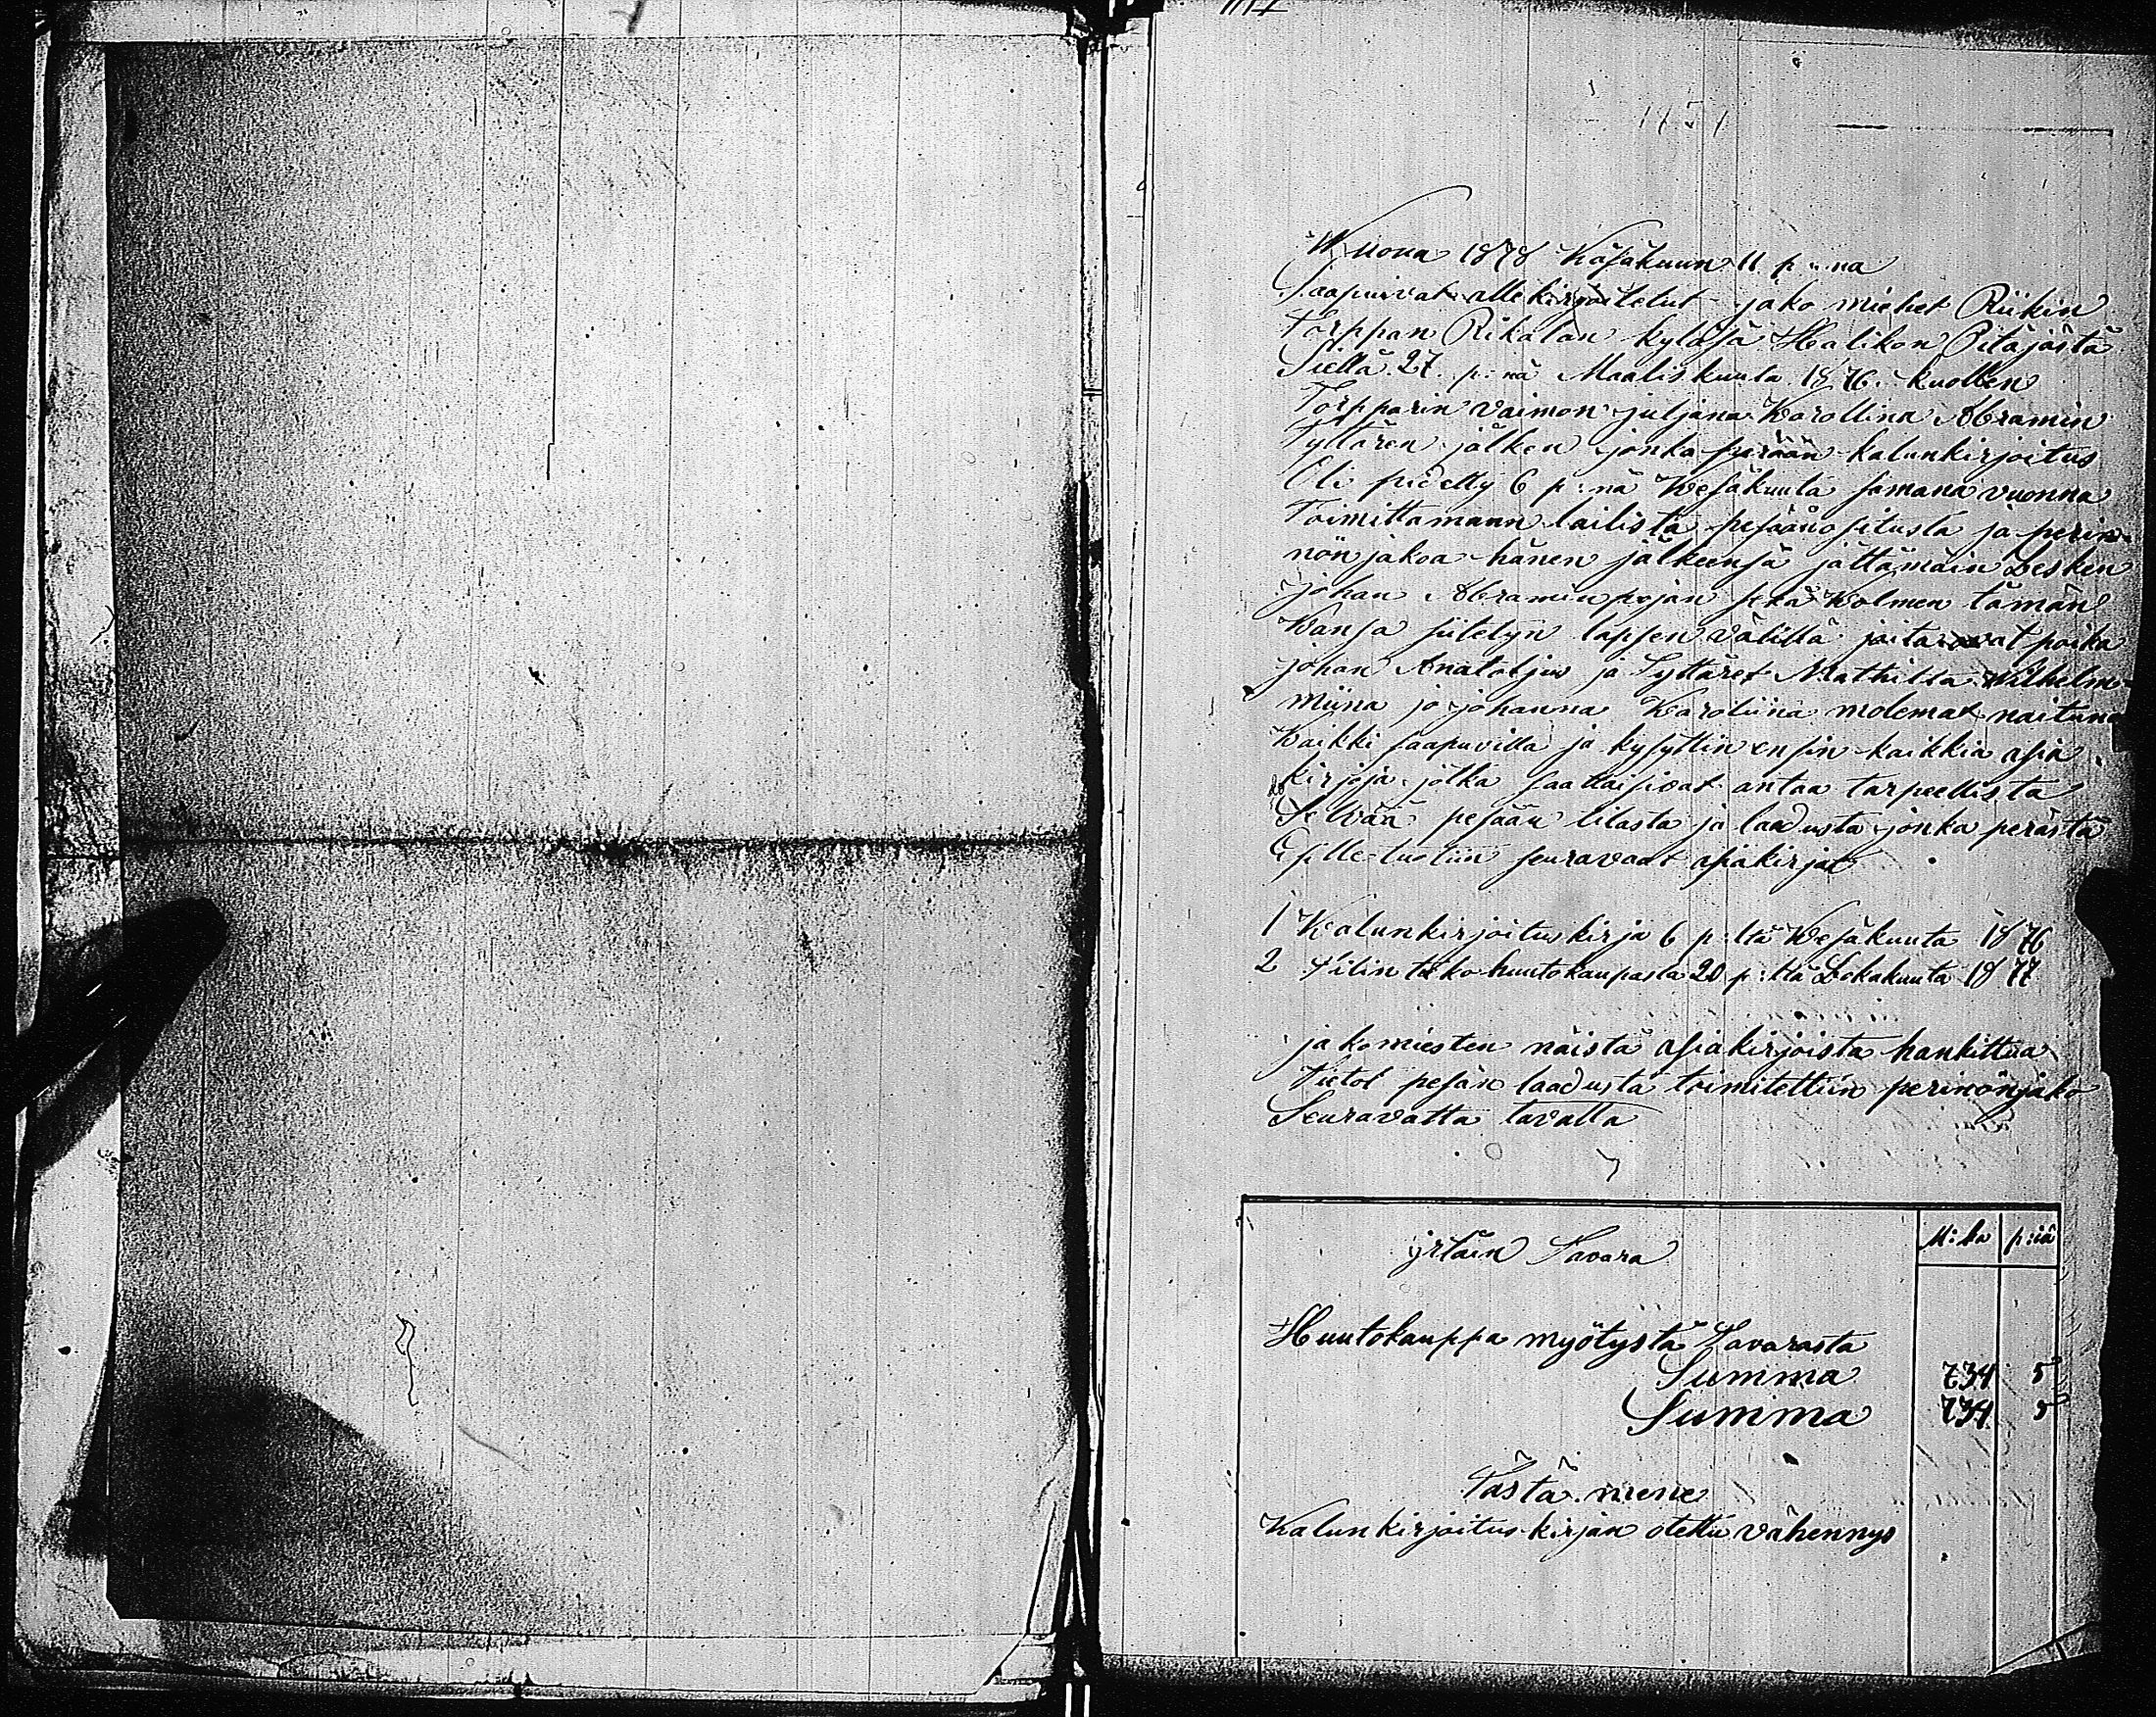 Wuona 1878 Käsäkuun 11 p:na
Saapuivat allekirjoitetut jako miehet Riikin
Torppan Rikalan kyläsä Halikon Pitäjästä
Siellä 27 p:nä Maaliskuuta 1876 kuollen
Torpparin vaimon juljana Karollina Abramin
Tyttären jälken jonka perään kalunkirjoitus
Oli pidetty 6 p:nä Kesäkuuta samana vuonna
Toimittamann lailista pesäänositusta ja perin-
nön jakoa hänen jälkeensä jättämäin Lesken
johan Abraminpojan sekä Kolmen tämän
Kansa siitetyn lapsen välillä joita ovat poika
johan Anatoljus ja Tyttäret Mathilta Wilhelm-
miina jo johanna Karoliina molemat naituna
Kaikki saapuvilla ja kysyttin ensin kaikkia asia
kirjoja jotka saattaisivat antaa tarpeellista
Selvää pesään tilasta ja laadusta jonka perästä
Esille tuotiin seuravaat asiakirjat
1 Kalunkirjoituskirja 6 p:ltä Kesäkuuta 1876
2 Tilin teko huutokaupasta 20 p:ltä Lokakuuta 1877
jakomiesten näistä asiakirjoista hankittua
Tietot pesän laadusta toimitettiin perinönjako
Seuravatta tavalla
irtain Tavara
M:ka p:iä
Huutokauppa myötystä Tavarasta
Summa 734 5
Summa 734 5
Tästä mene
Kalunkirjoitus kirjan otettu vähennys